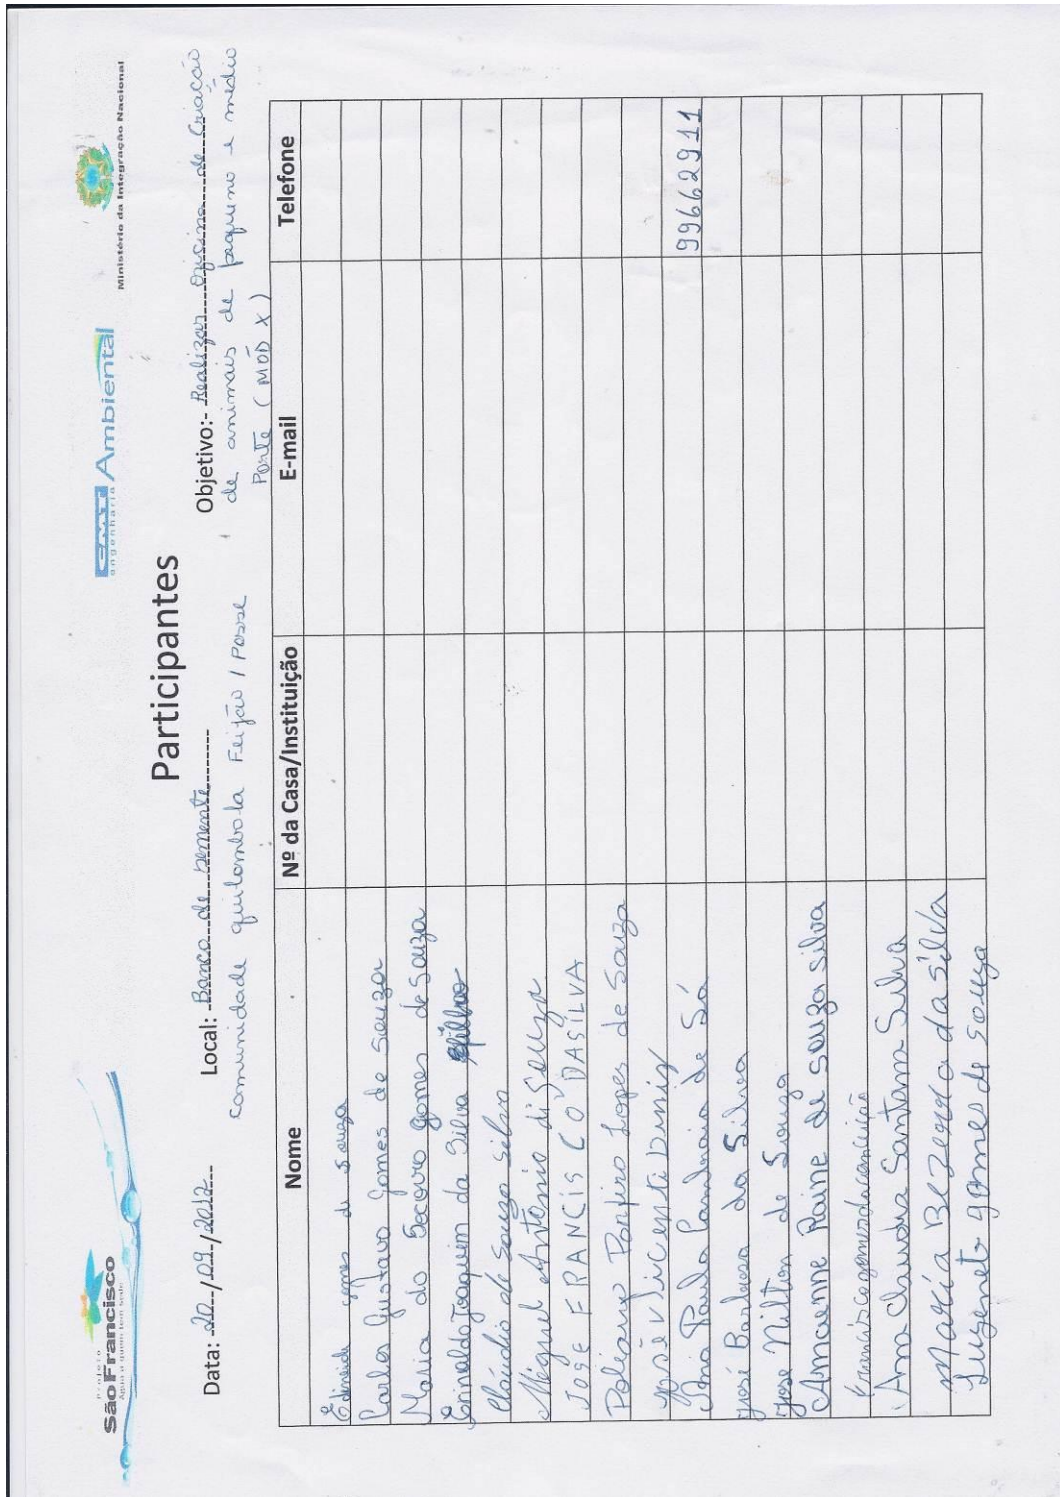 Projeto
São Francisco
Água a quem tem sede
CMT Ambiental
engenharia
Ministério da Integração Nacional
Participantes
Data: 20/09/2012 Local: Banco de semente Objetivo:- Realizar Oficina de Criação
comunidade quilombola Feijão / Posse de animais de pequeno e médio
Porte (MÓD X)
Nome Nº da Casa/Instituição E-mail Telefone
Edineide gomes de souza
Carlos Gustavo Gomes de Souza
Maria do Socorro gomes de Souza
Erinaldo Joaquim da Silva filho
Cláudio de Souza Silva
Miguel Antônio di Souza
JOSE FRANCISCO DASILVA
Poliano Porfiro Lopes de Souza
José Vicenti Diniz
Ana Paula Landnaia de Sá 99662911
José Barbosa da Silva
José Nilton de Souza
Amcienne Raine de Souza Silva
francisca gomes da conceição
Ana Claudia Santana Silva
Maria Bezerra da Silva
Luzenete gomes de souza